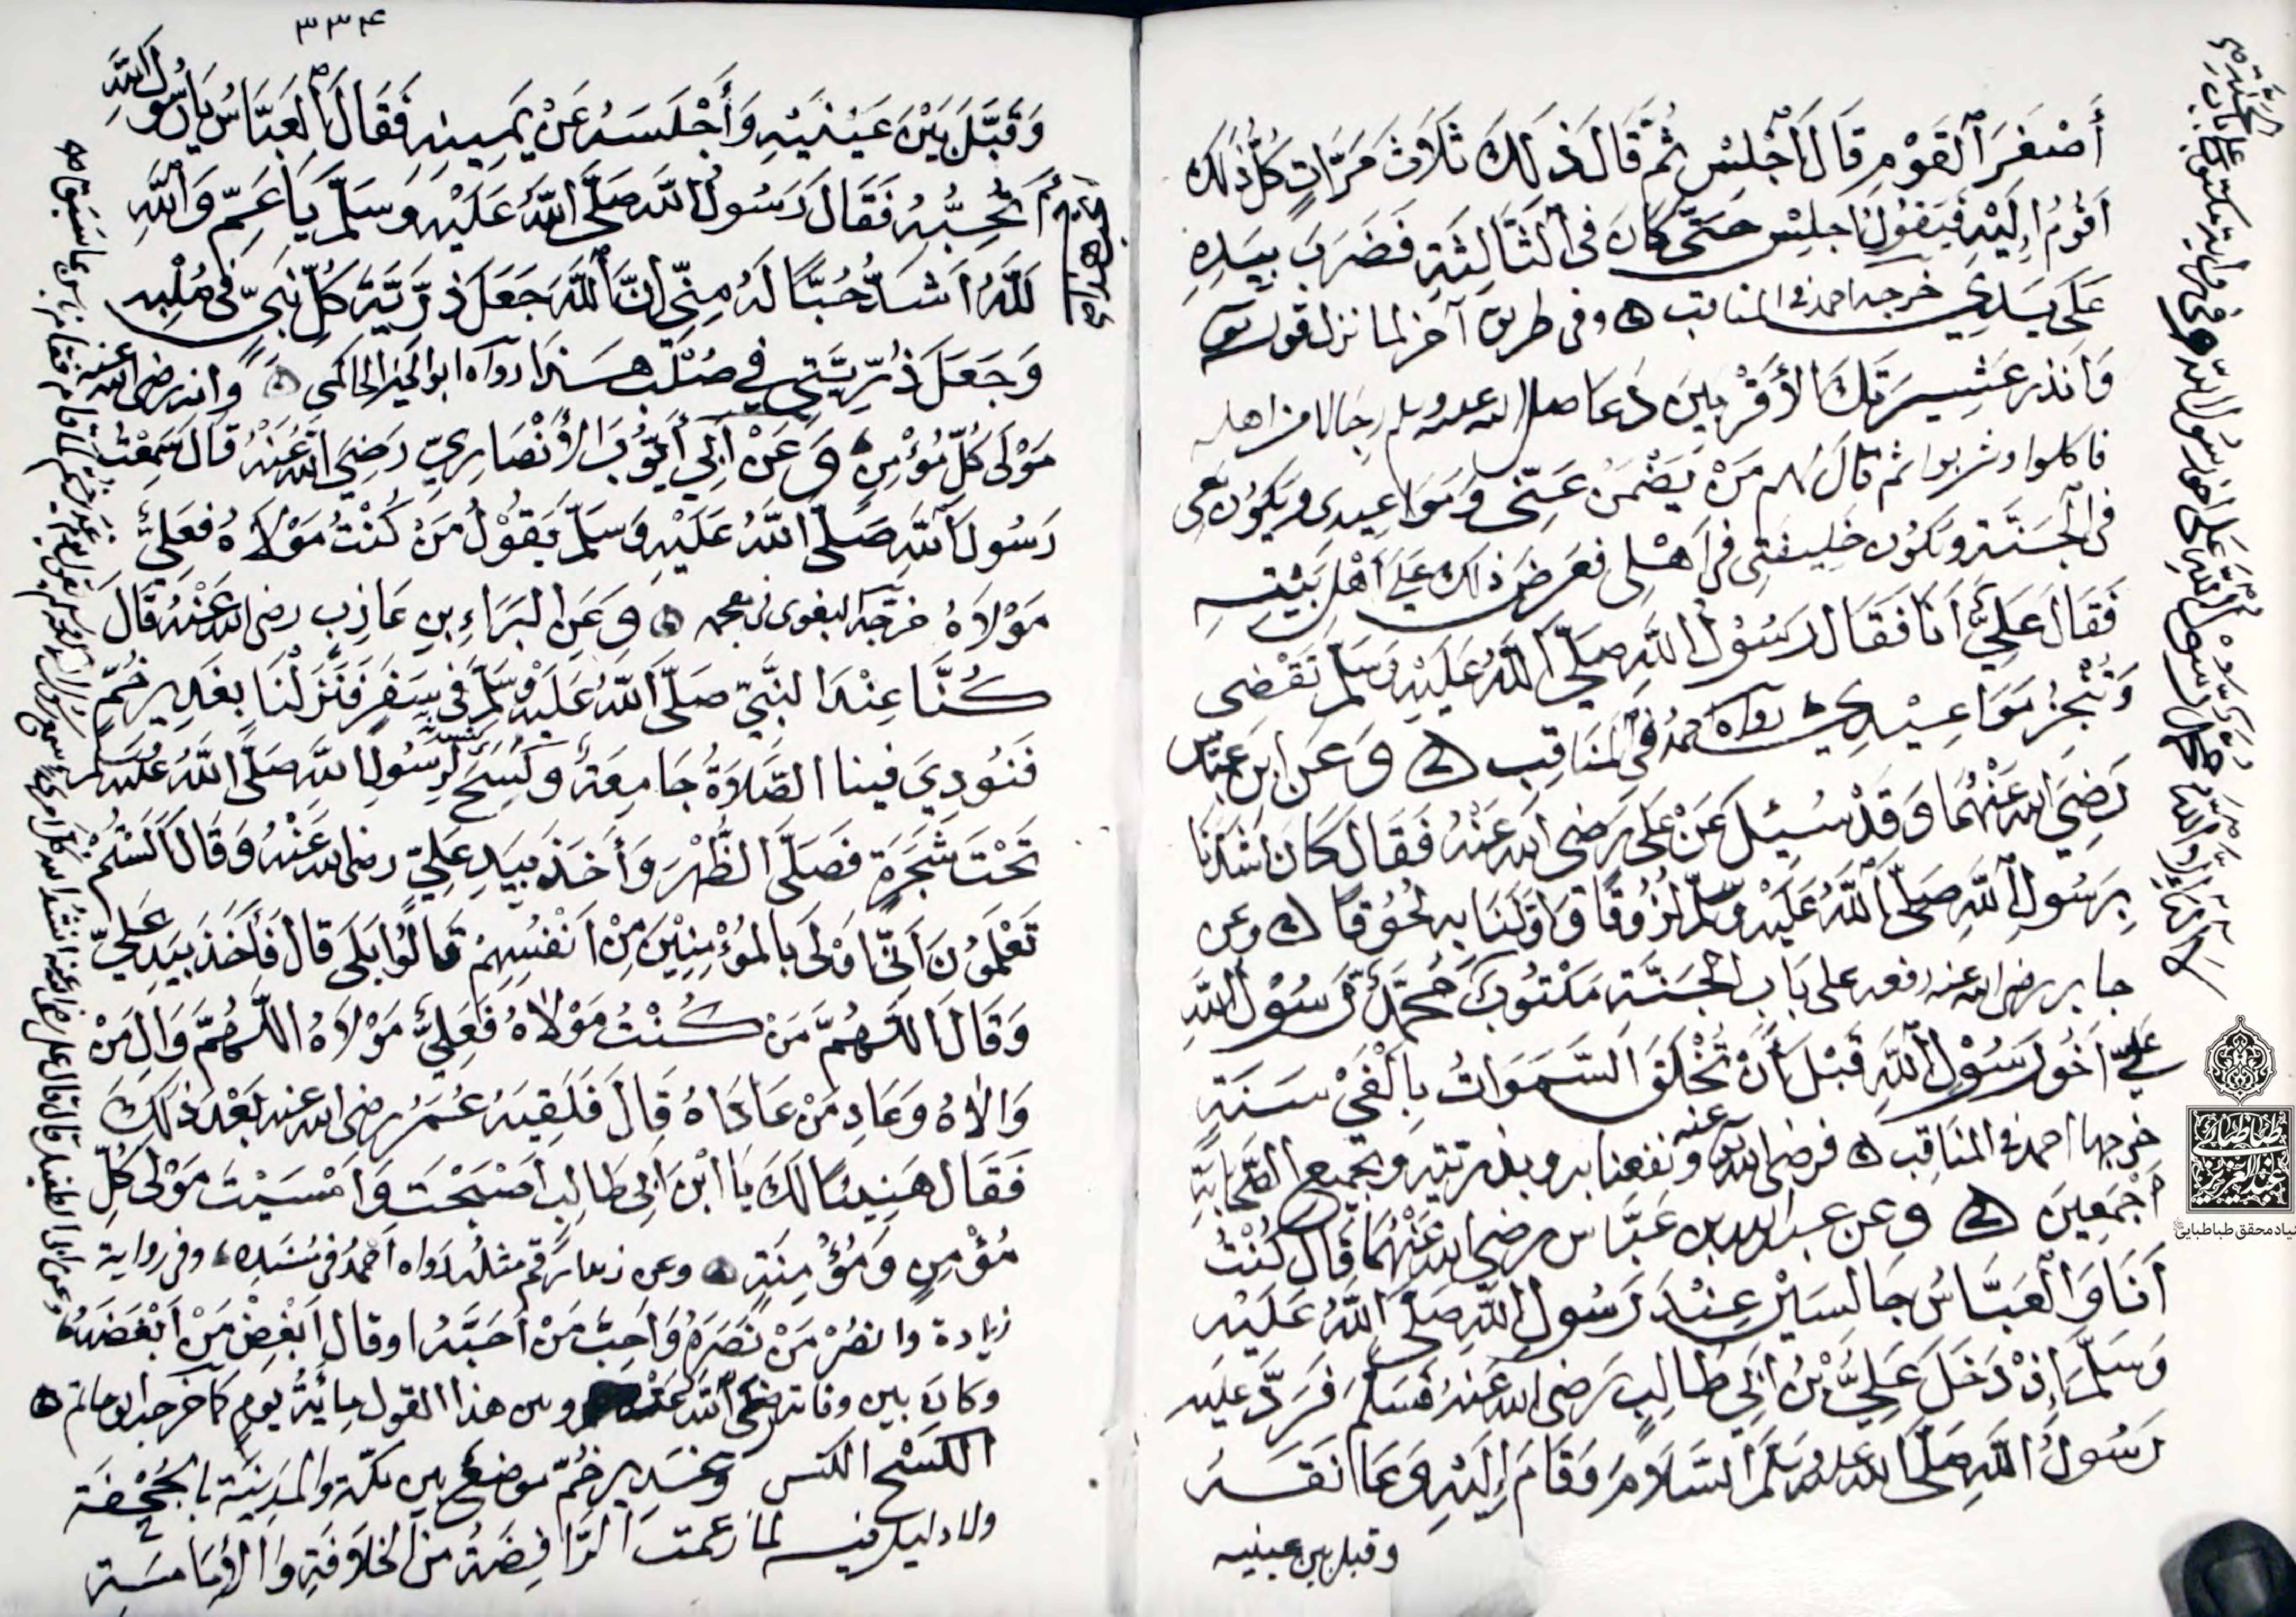 أَصْغَرَ ٱلْقَوْمِ قَالَ ٱجْلِسْ ثُمَّ قَالَ ذٰلِكَ ثَلَاثَ مَرَّاتٍ كُلُّ ذٰلِكَ
اَقُومُ اِلَيْهِ فَيَقُولُ اجْلِسْ حَتّٰى كَانَ فِى ٱلثَّالِثَةِ فَضَرَبَ بِيَدِهِ
عَلَى يَدِي خرجه احمد فى المناقب وفى طريق آخر لما نزل قوله
وَاَنْذِرْ عَشِيرَتَكَ الْأَقْرَبِينَ دَعَا صلى الله عليه وسلم رِجَالا من اهله
فاكلوا وشربوا ثم قَالَ لهم مَنْ يَضْمَنُ عَنِّى وَمَوَاعِيدِى ويَكُون مَعِى
فى الْجَنَّةِ ويَكُون خَلِيفَتِى فى اَهْلِى فعَرَضَ ذلك عَلَى أَهْلِ بَيْتِهِ
فَقَالَ عَلِيٌّ اَنَا فَقَالَ رَسُولُ اللَّهِ صَلَّى اللَّهُ عَلَيْهِ وَسَلَّمَ تَقْضِى
وَتُنْجِزُ مَوَاعِيْدِي رواه احمدُ فِى الْمَنَاقِبِ وَعَنِ ابْنِ عَبَّاسٍ
رَضِيَ الله عَنْهُمَا وَقَدْ سُئِلَ عَنْ عَلِى رَضِى الله عَنْهُ فَقَالَ كَانَ اَشَدَّنَا
بِرَسُولِ اللَّهِ صَلَّى اللَّهُ عَلَيْهِ وَسَلَّمَ لُزُوقًا وَاَوَّلَنَا بِهِ لُحُوقًا وعن
جابر رضى الله عنه رفعه على بَابِ الْجَنَّةِ مَكْتُوبٌ مُحَمَّدٌ رَسُوْلُ اللَّهِ
عَلِيٌّ اَخُو رَسُوْلِ اللَّهِ قَبْلَ أَنْ تُخْلَقَ السَّمَوَاتُ بِاَلْفَيْ سَنَةٍ
خرجها احمد فى المناقب فرضى الله عنه ونفعنا به وبذريته وبجميع الصَّحَابَةِ
أَجْمَعِينَ وعن عبد الله بن عَبَّاس رضى الله عَنْهُمَا قَالَ كُنْتُ
اَنَا وَالْعَبَّاسُ جَالِسَيْنِ عِنْدَ رَسُولِ اللَّهِ صَلَّى اللَّهُ عَلَيْهِ
وَسَلَّمَ اِذْ دَخَلَ عَلِيُّ بْنُ اَبِي طَالِبٍ رَضى الله عَنْهُ فَسَلَّمَ فَرَدَّ عَلَيْهِ
رَسُولُ اللَّهِ صَلَّى الله عليه وسَلَّمَ السَّلَامَ وَقَامَ اِلَيْهِ وَعَانَقَهُ
وقبل بين عينيه
٣٣٤
وَقَبَّلَ بَيْنَ عَيْنَيْهِ وَأَجْلَسَهُ عَنْ يَمِينِهِ فَقَالَ الْعَبَّاسُ يَا رَسُولَ اللَّهِ
أَتُحِبُّهُ فَقَالَ رَسُولُ اللَّهِ صَلَّى اللَّهُ عَلَيْهِ وَسَلَّمَ يَا عَمِّ وَاللَّهِ
لَلَّهُ اَشَدُّ حُبًّا لَهُ مِنِّى اِنَّ اللَّهَ جَعَلَ ذُرِّيَّةَ كُلِّ نَبِىٍّ فِى صُلْبِهِ
وَجَعَلَ ذُرِّيَّتِي فِي صُلْبِ هَذَا رواه ابو الخير الحاكمى وانه رضى الله عنه
مَوْلَى كُلِّ مُؤْمِنٍ وَعَنْ اَبِي أَيُّوبَ الْأَنْصَارِيِّ رَضِيَ اللَّهُ عَنْهُ قَالَ سَمِعْتُ
رَسُولَ اللَّهِ صَلَّى اللَّهُ عَلَيْهِ وَسَلَّمَ يَقُوْلُ مَنْ كُنْتُ مَوْلَاهُ فَعَلِيٌّ
مَوْلَاهُ خرّجه البغوى فى معجمه وَعَنِ الْبَرَاءِ بنِ عَازِبٍ رضى الله عَنْهُ قَالَ
كُنَّا عِنْدَ النَّبِيِّ صَلَّى اللَّهُ عَلَيْهِ وَسَلَّمَ فِى سَفَرٍ فَنَزَلْنَا بِغَدِيرِ خُمٍّ
فَنُودِيَ فينا الصَّلَاةُ جَامِعَةٌ وَكُسِحَ لِرَسُولِ اللَّهِ صَلَّى اللَّهُ عَلَيْهِ وسلم
تَحْتَ شَجَرَةٍ فَصَلَّى الظُّهْرَ وَأَخَذَ بِيَدِ عَلِيٍّ رضى الله عَنْهُ وَقَالَ اَلَسْتُمْ
تَعْلَمُونَ اَنِّى اَوْلَى بِالْمُؤْمِنِيْنَ مِنْ اَنْفُسِهِمْ قَالُوا بَلَى قَالَ فَأَخَذَ بِيَدِ عَلِيٍّ
وَقَالَ اللَّهُمَّ مَنْ كُنْتُ مَوْلَاهُ فَعَلِيٌّ مَوْلَاهُ اللَّهُمَّ وَالِ مَنْ
وَالَاهُ وَعَادِ مَنْ عَادَاهُ قَالَ فَلَقِيَهُ عُمَرُ رضى الله عنه بَعْدَ ذَلِكَ
فَقَالَ هَنِيئًا لَكَ يَا ابْنَ اَبِى طَالِبٍ اَصْبَحْتَ وَاَمْسَيْتَ مَوْلَى كُلِّ
مُؤْمِنٍ وَمُؤْمِنَةٍ وعن زيد بن ارقم مثله رواه اَحْمَدُ فى مُسْنَدِهِ، وفى رواية
زيادة وانْصُرْ مَنْ نَصَرَهُ وَاَحِبَّ مَنْ اَحَبَّهُ او قال اَبْغِضْ مَنْ اَبْغَضَهُ
وكانَ بين وفاته رضى الله عنه وبين هذا القول مِائَةُ يومٍ كما خرجه ابو حاتم
الكَسْح الكنس وغدير خُمّ موضع بين مكّة والمدينة بالجُحْفَة
ولا دليل فيه لما زعمت الرَّافِضَةُ من الخلافَةِ والْأِمَامَة
طباطبائى
عبدالعزيز
بنیاد محقق طباطبایی